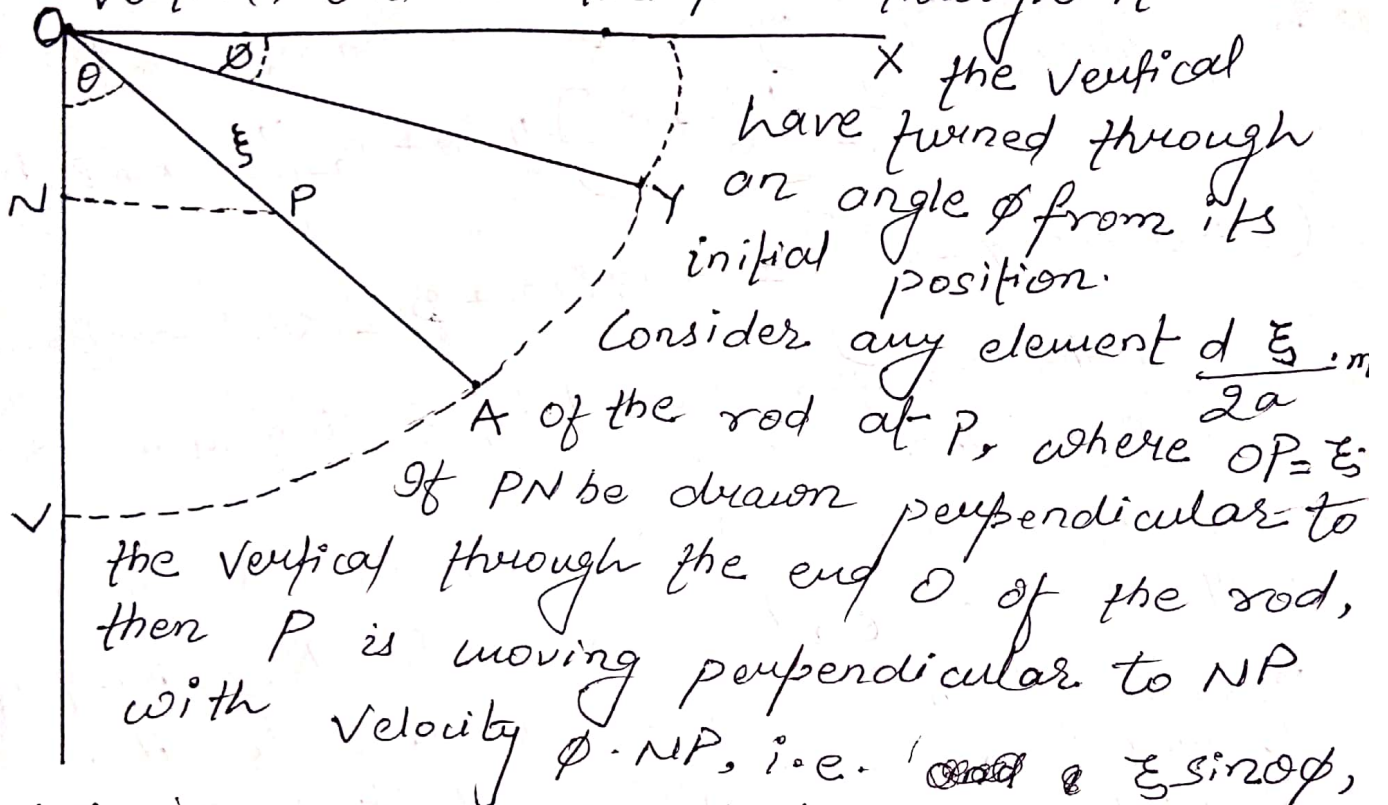 O
X
θ
φ
the vertical
have turned through
ξ
N
P
Y
an angle φ from its
initial position.
Consider any element dξ/2a . m
A
of the rod at P, where OP = ξ.
If PN be drawn perpendicular to
V
the vertical through the end O of the rod,
then P is moving perpendicular to NP
with velocity φ · NP, i.e. ξ sinθφ,